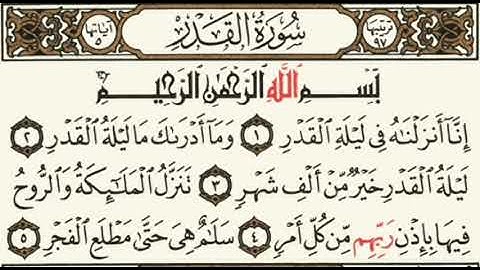 ترتيبها ٩٧ سُورَةُ القَدْرِ آياتها ٥
بِسْمِ اللَّهِ الرَّحْمَٰنِ الرَّحِيمِ
إِنَّا أَنزَلْنَٰهُ فِى لَيْلَةِ ٱلْقَدْرِ ١ وَمَآ أَدْرَىٰكَ مَا لَيْلَةُ ٱلْقَدْرِ ٢
لَيْلَةُ ٱلْقَدْرِ خَيْرٌ مِّنْ أَلْفِ شَهْرٍ ٣ تَنَزَّلُ ٱلْمَلَٰٓئِكَةُ وَٱلرُّوحُ
فِيهَا بِإِذْنِ رَبِّهِم مِّن كُلِّ أَمْرٍ ٤ سَلَٰمٌ هِىَ حَتَّىٰ مَطْلَعِ ٱلْفَجْرِ ٥